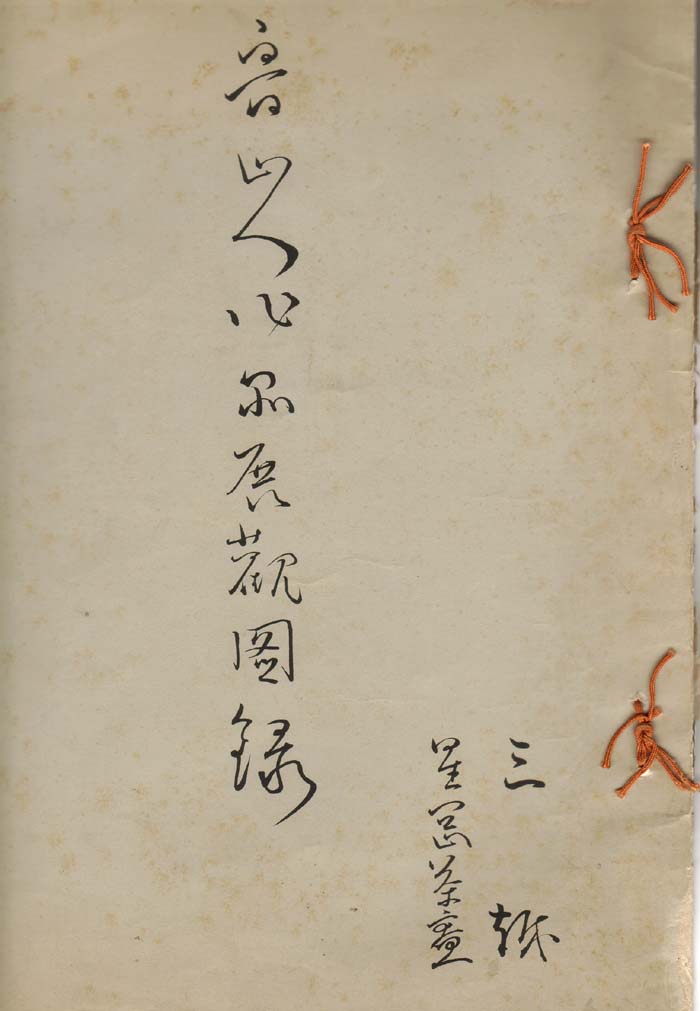 三越
星岡茶寮
魯山人作品展觀圖録